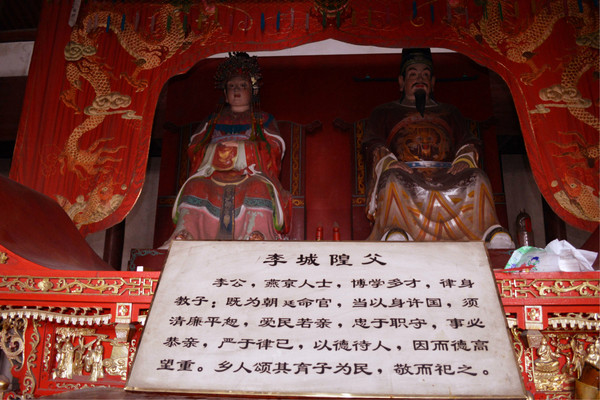 李城隍父
李公，燕京人士，博学多才，律身
教子；既为朝廷命官，当以身许国，须
清廉平恕，爱民若亲，忠于职守，事必
恭亲，严于律已，以德待人，因而德高
望重。乡人颂其育子为民，敬而祀之。